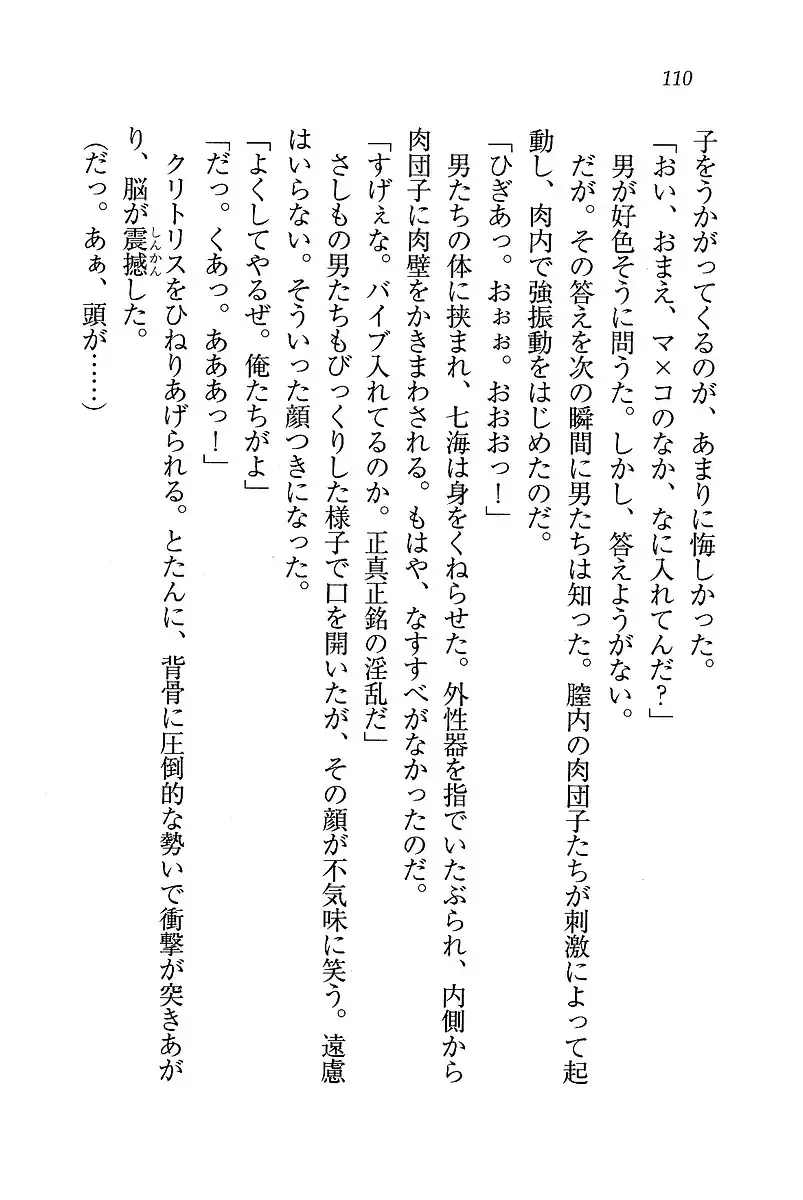 110
子をうかがってくるのが、あまりに悔しかった。
「おい、おまえ、マ×コのなか、なに入れてんだ？」
男が好色そうに問うた。しかし、答えようがない。
だが。その答えを次の瞬間に男たちは知った。膣内の肉団子たちが刺激によって起
動し、肉内で強振動をはじめたのだ。
「ひぎあっ。おぉぉ。おおおっ！」
男たちの体に挟まれ、七海は身をくねらせた。外性器を指でいたぶられ、内側から
肉団子に肉壁をかきまわされる。もはや、なすすべがなかったのだ。
「すげぇな。バイブ入れてるのか。正真正銘の淫乱だ」
さしもの男たちもびっくりした様子で口を開いたが、その顔が不気味に笑う。遠慮
はいらない。そういった顔つきになった。
「よくしてやるぜ。俺たちがよ」
「だっ。くあっ。あああっ！」
クリトリスをひねりあげられる。とたんに、背骨に圧倒的な勢いで衝撃が突きあが
り、脳が震撼しんかんした。
（だっ。あぁ、頭が……）